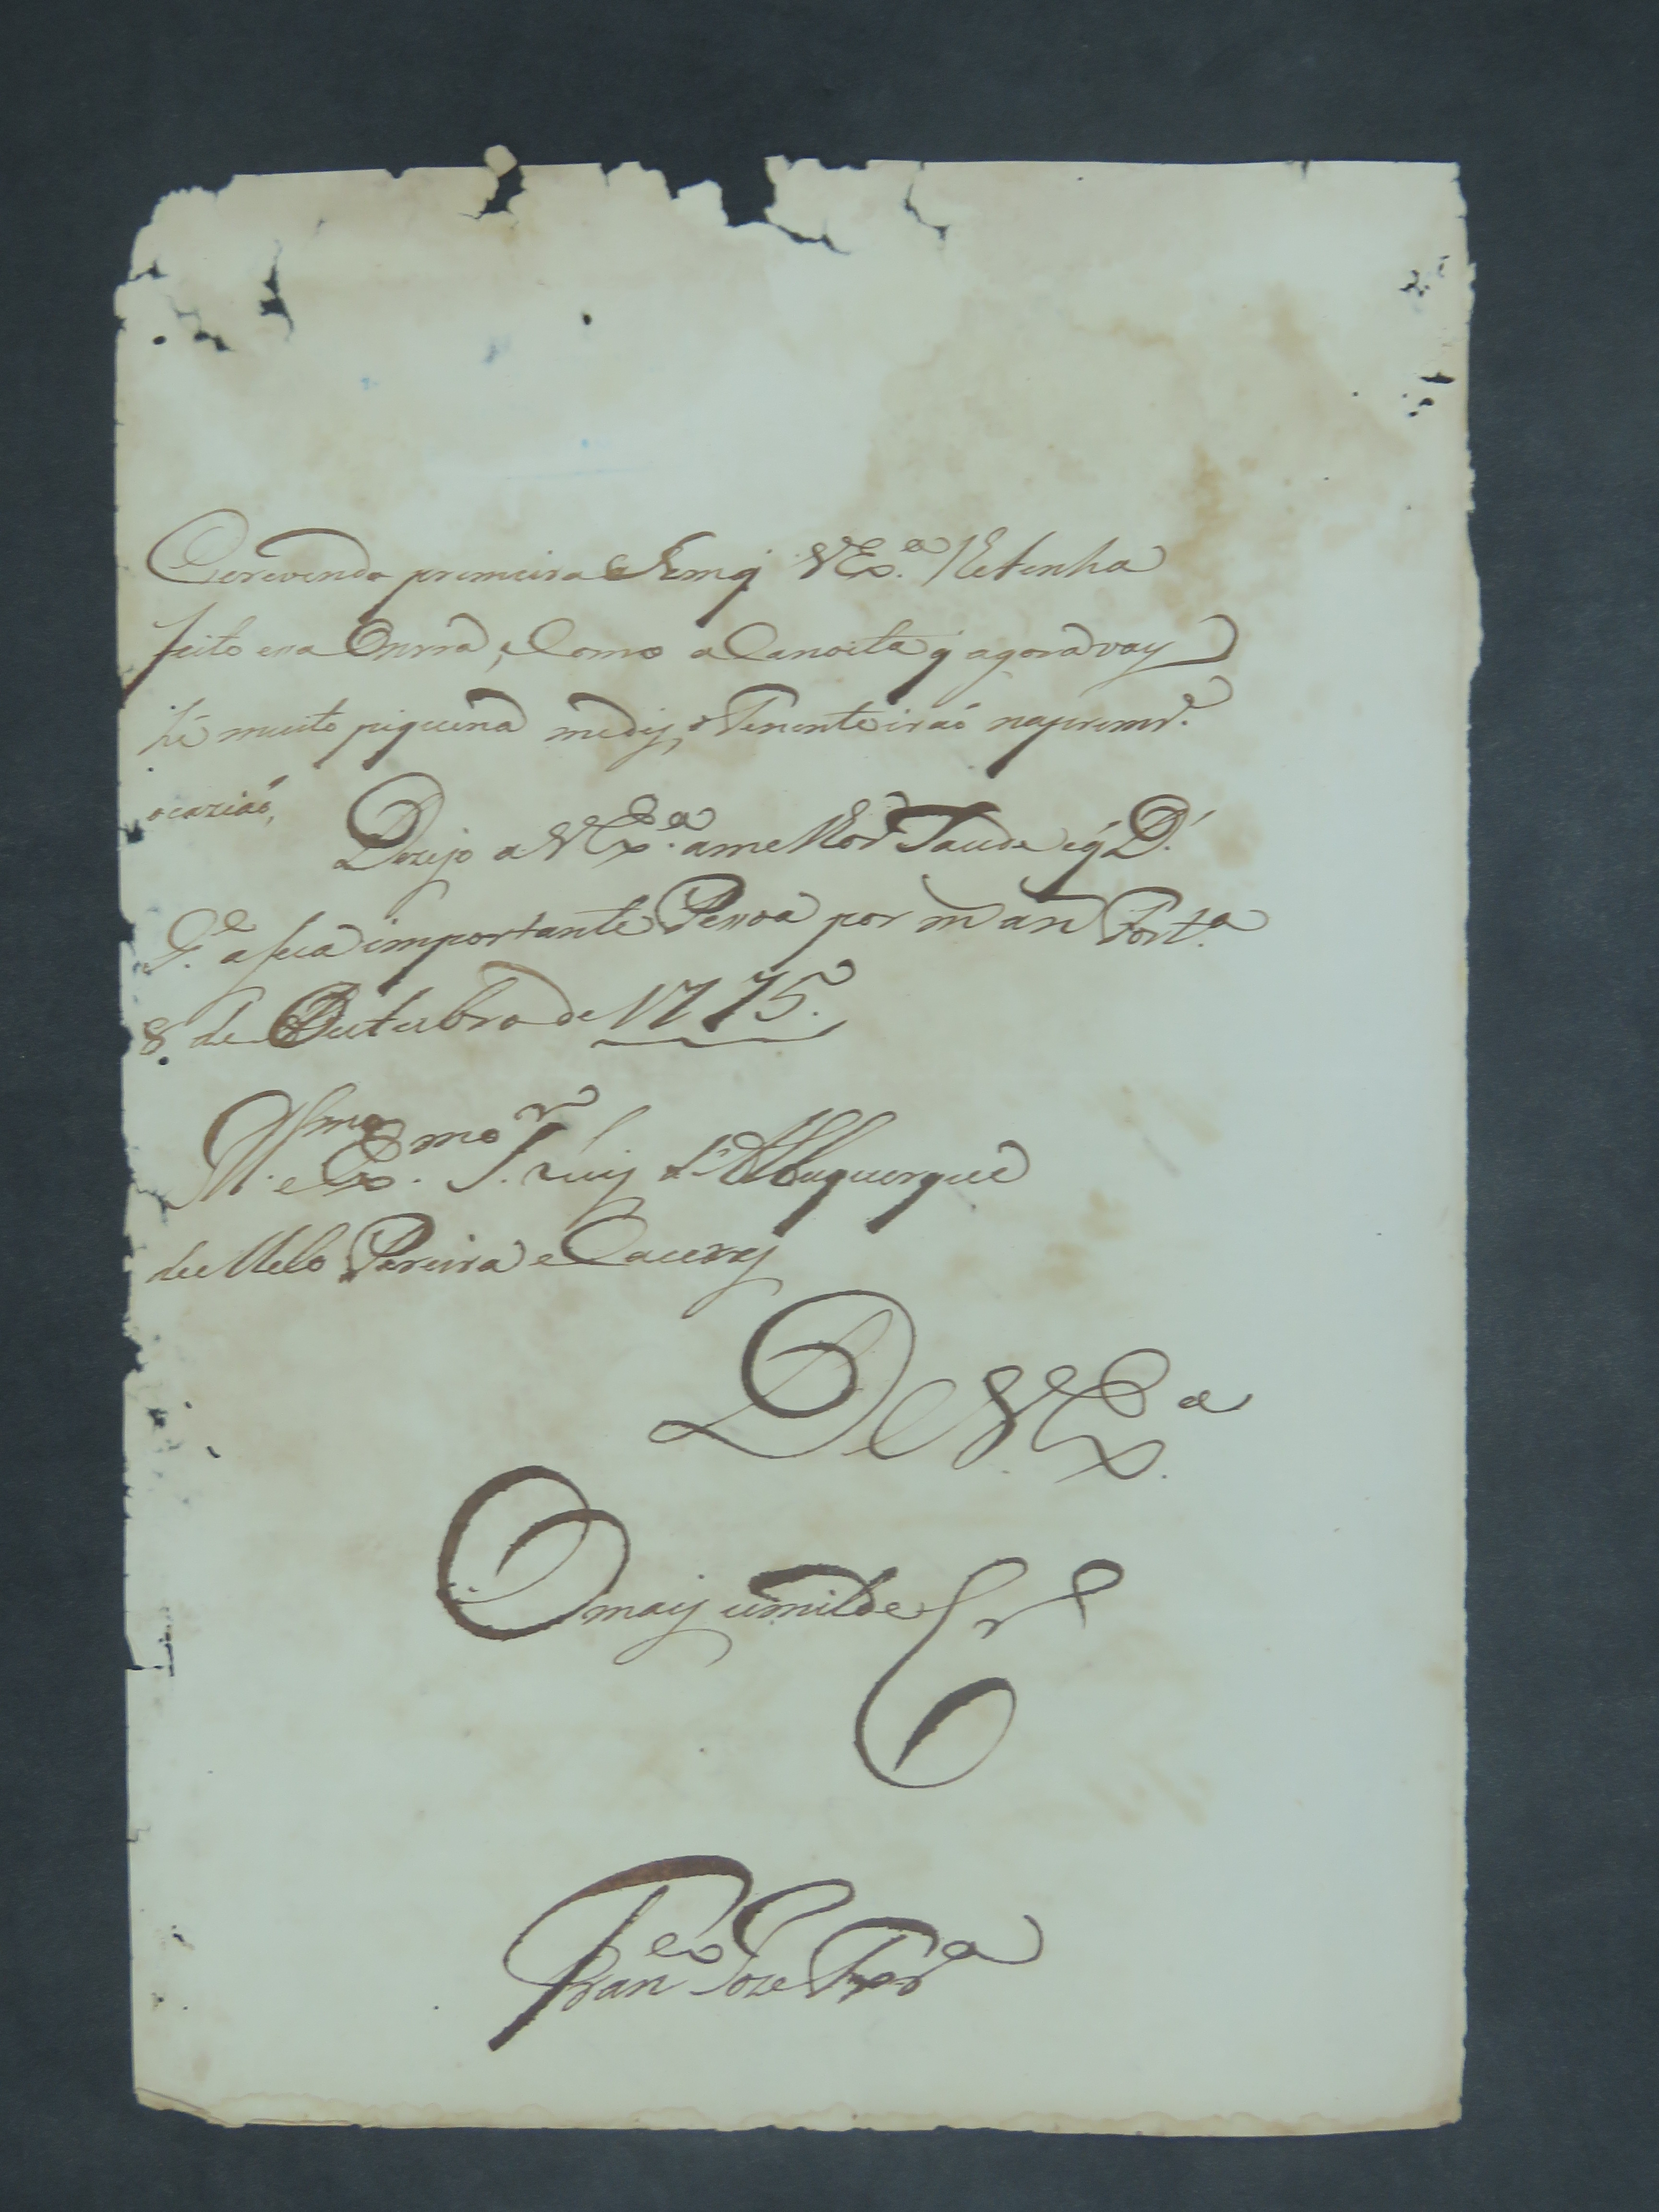 Escrevendo primeira Em q̃ VEx.ª Me tenha
feito esa Onrra, e Como a Canoita q̃ agora vay
hé muito piquena medis, o Tenente iraó na primr.ª
ocaziaó,
Dezejo a VEx.ª a melhor Saude e q̃ D.ˢ
G.ᵉ a sua importante Pesoa por m an Fort.ª
8 de Outubro de 1775.
Ill.ᵐᵒ e Ex.ᵐᵒ S.ʳ Luis d'Albuquerque
de Melo Pereira e Caceres
De VEx.ª
O mais umilde
Fran.ᶜᵒ Joze Teixr.ª